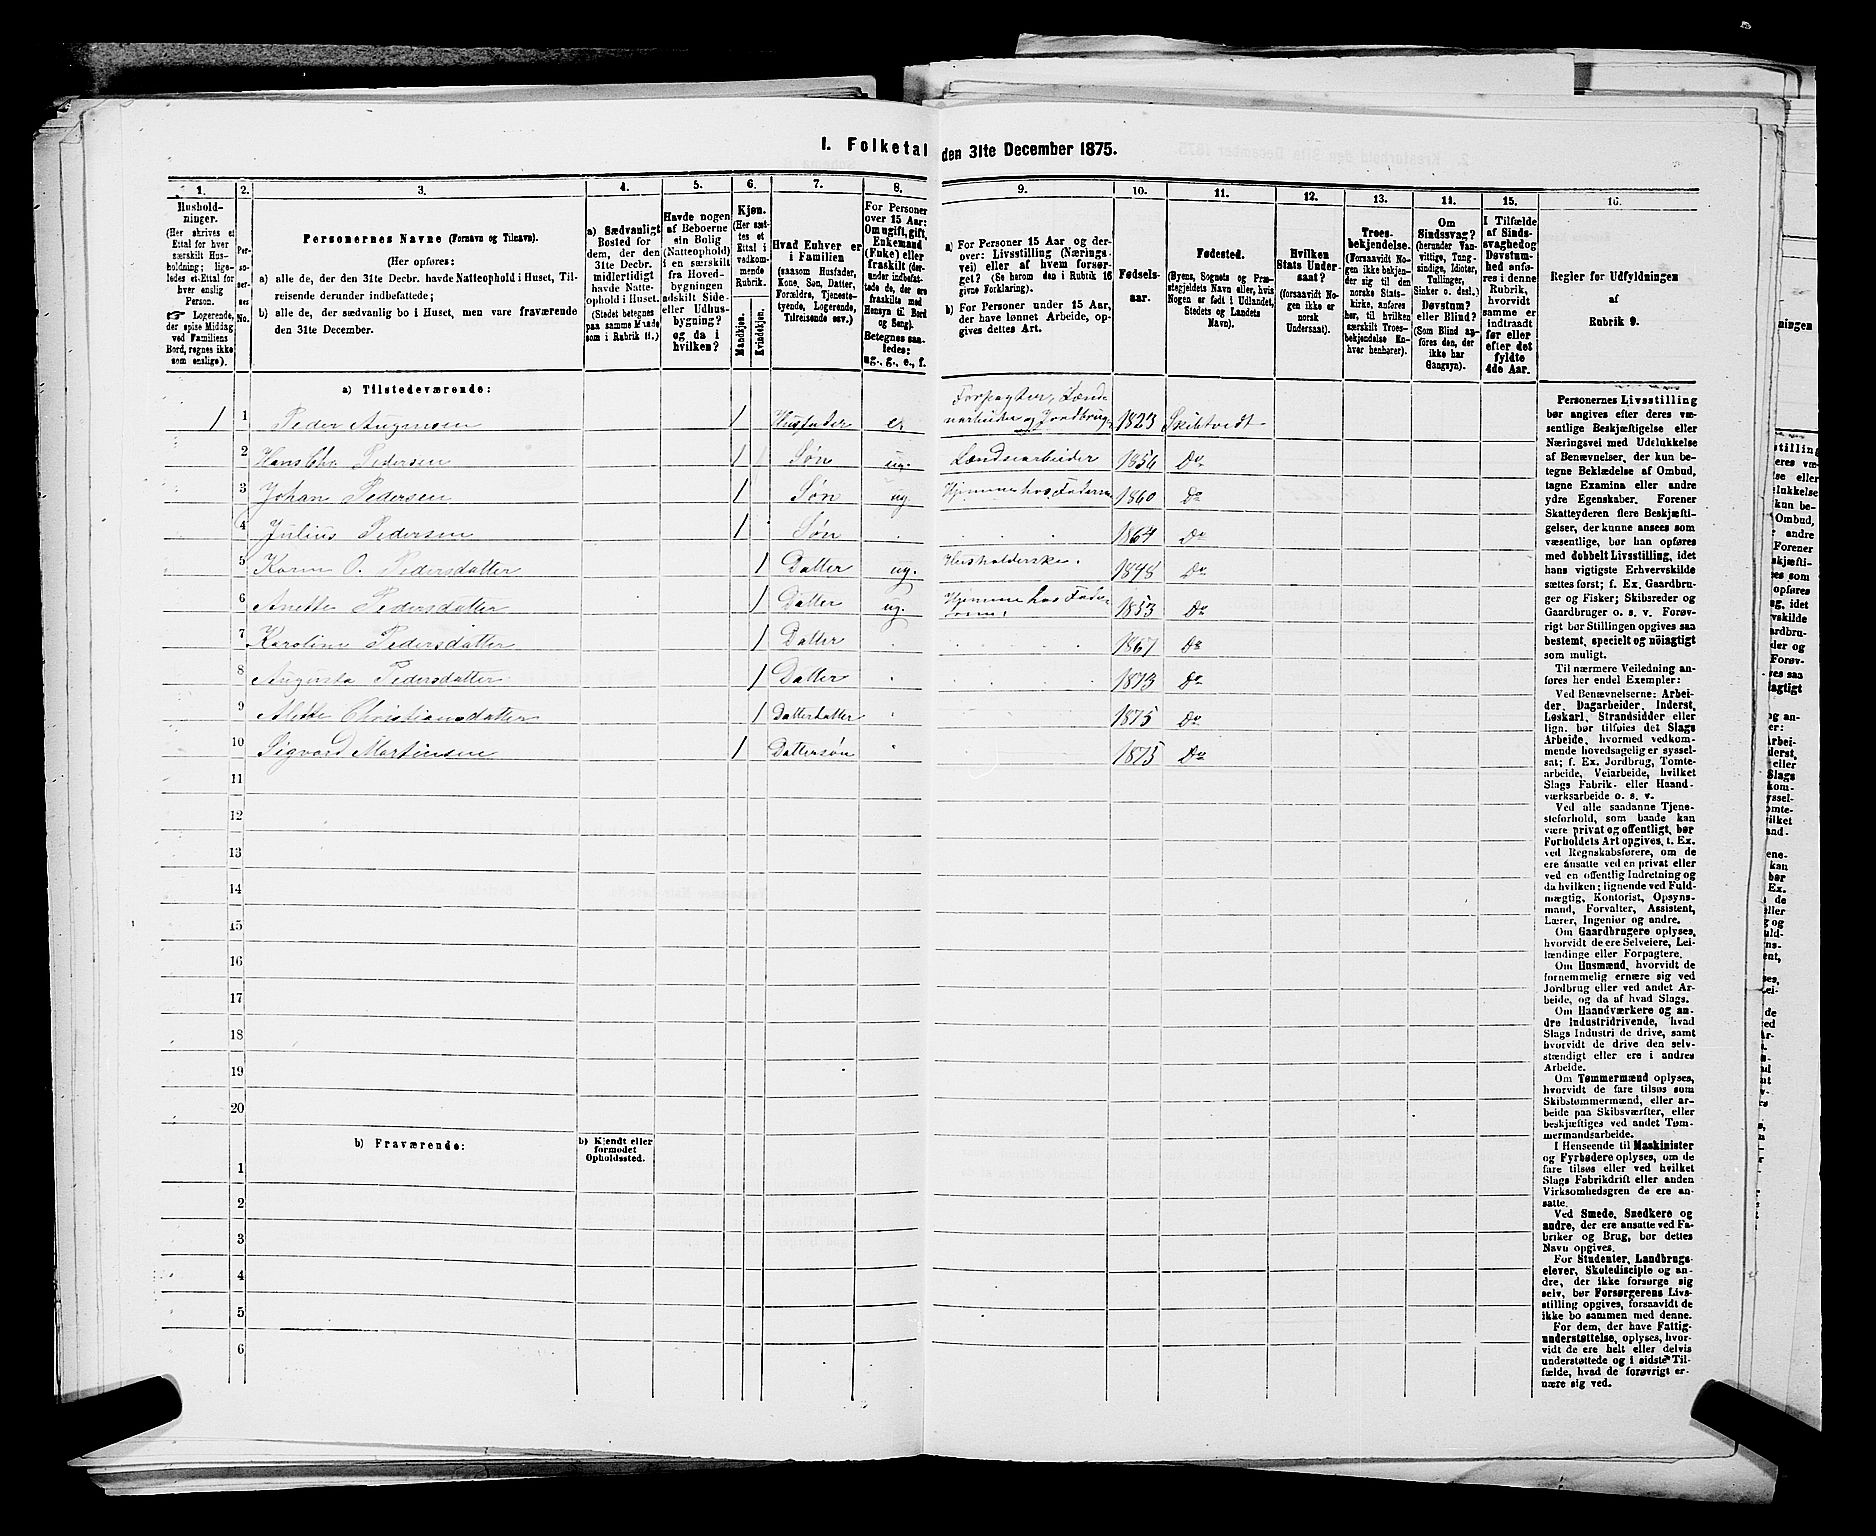 1. Folketal den 31te December 1875.
1. 2. 3. 4. 5. 6. 7. 8. 9. 10. 11. 12. 13. 14. 15. 16.
Hushold-
ninger.
(Her skrives et
Ettal for hver
særskilt Hus-
holdning; lige-
ledes et Ettal for
hver enslig
Person.
☞ Logerende,
der spise Middag
ved Familiens
Bord, regnes ikke
som enslige).
Per-
so-
ner-
nes
No.
Personernes Navne (Fornavn og Tilnavn).
(Her opføres:
a) alle de, der den 31te Decbr. havde Natteophold i Huset, Til-
reisende derunder indbefattede;
b) alle de, der sædvanlig bo i Huset, men vare fraværende
den 31te December.
a) Sædvanligt
Bosted for
dem, der den
31te Decbr.
midlertidigt
havde Natte-
ophold i Huset.
(Stedet betegnes
paa samme Maade
som i Rubrik 11.)
Havde nogen
af Beboerne
sin Bolig
(Natteophold)
i en særskilt
fra Hoved-
bygningen
adskilt Side-
eller Udhus-
bygning?
og da i
hvilken?
Kjøn.
(Her sæt-
tes et
Ettal i
vedkom-
mende
Rubrik.
Mandkjøn.
Kvindekjøn.
Hvad Enhver er
i Familien
(saasom Husfader,
Kone, Søn, Datter,
Forældre, Tjeneste-
tyende, Logerende,
Tilreisende osv.)
For Personer
over 15 Aar:
Om ugift, gift,
Enkemand
(Enke) eller
fraskilt (der-
under indbefat-
tede de, der ere
fraskilte med
Hensyn til Bord
og Seng).
Betegnes saa-
ledes:
ug., g., e., f.
a) For Personer 15 Aar og der-
over: Livsstilling (Nærings-
vei) eller af hvem forsør-
get? (Se herom den i Rubrik 16
givne Forklaring).
b) For Personer under 15 Aar,
der have lønnet Arbeide, op-
gives dettes Art.
Fødsels-
aar.
Fødested.
(Byens, Sognets og Præ-
stegjeldets Navn eller, hvis
Nogen er født i Udlandet,
Stedets og Landets
Navn).
Hvilken
Stats Under-
saat?
(forsaavidt No-
gen ikke er
norsk
Undersaat).
Troes-
bekjendelse.
(Forsaavidt No-
gen ikke bekjen-
der sig til den
norske Stats-
kirke, anføres
her, til hvilken
særskilt Troes-
bekjendelse En-
hver henhører).
Om
Sindssvag?
(herunder Van-
vittige, Tung-
sindige, Idioter,
Tullinger,
Sinker o. desl.)
Døvstum?
eller Blind?
(Som Blind an-
føres den, der
ikke har
Gangsyn).
I Tilfælde
af Sinds-
svaghed og
Døvstum-
hed anfø-
res i denne
Rubrik,
hvorvidt
samme er
indtraadt
før eller
efter det
fyldte
4de Aar.
Regler før Udfyldningen
af
Rubrik 9.
a) Tilstedeværende:
1 1 Peder Augmoen 1 Husfader e. Forpagter, Lændse
narbeider og Jordbruger 1823 Skibtvedt
2 Hans Chr. Pedersen 1 Søn ug. Lændsearbeider 1856 Do
3 Johan Pedersen 1 Søn ug Hjemme hos Faderen 1860 Do
4 Julius Pedersen 1 Søn 1864 Do
5 Karen O. Pedersdatter 1 Datter ug. Husholderske. 1848 Do
6 Anette Pedersdatter 1 Datter ug. Hjemme hos Fade- 1853 Do
7 Karoline Pedersdatter 1 Datter 1867 Do
8 Augusta Pedersdatter 1 Datter 1873 Do
9 Alette Christiansdatter 1 Datterdatter 1875 Do
10 Sigvard Martinsen 1 Dattersøn 1875 Do
11
12
13
14
15
16
17
18
19
20
b) Fraværende:
b) Kjendt eller
formodet
Opholdssted.
1
2
3
4
5
6
Personernes Livsstilling
bør angives efter deres væ-
sentlige Beskjæftigelse eller
Næringsvei med Udelukkelse
af Benævnelser, der kun be-
tegne Beklædelse af Ombud,
tagne Examina eller andre
ydre Egenskaber. Forener
Skatteyderen flere Beskjæfti-
gelser, der kunne ansees som
væsentlige, bør han opføres
med dobbelt Livsstilling, idet
hans vigtigste Erhvervskilde
sættes først; f. Ex. Gaardbru-
ger og Fisker; Skibsreder og
Gaardbruger o. s. v. Forøv-
rigt bør Stillingen opgives saa
bestemt, specielt og nöiagtigt
som muligt.
Til nærmere Veiledning an-
føres her endel Exempler:
Ved Benævnelserne: Arbei-
der, Dagarbeider, Inderst,
Løskarl, Strandsidder eller
lign. bør tilføies det Slags
Arbeide, hvormed vedkom-
mende hovedsagelig er syssel-
sat; f. Ex. Jordbrug, Tomte-
arbeide, Veiarbeide, hvilket
Slags Fabrik- eller Haand-
værksarbeide o. s. v.
Ved alle saadanne Tjene-
steforhold, som baade kan
være privat og offentligt, bør
Forholdets Art opgives, t. Ex.
ved Regnskabsførere, om de
ere ansatte ved en privat eller
ved en offentlig Indretning og
da hvilken; lignende ved Fuld-
mægtig, Kontorist, Opsyns-
mand, Forvalter, Assistent,
Lærer, Ingeniør og andre.
Om Gaardbrugere oplyses,
hvorvidt de ere Selveiere, Lei-
lændinge eller Forpagtere.
Om Husmænd, hvorvidt de
fornemmelig ernære sig ved
Jordbrug eller ved andet Ar-
beide, og da af hvad Slags.
Om Haandværkere og an-
dre Industridrivende, hvad
Slags Industri de drive, samt
hvorvidt de drive den selv-
stændigt eller ere i andres
Arbeide.
Om Tømmermænd oplyses,
hvorvidt de fare tilsøs som
Skibstømmermænd, eller ar-
beide paa Skibsværfter, eller
beskjæftiges ved andet Tøm-
mermandsarbeide.
I Henseende til Maskinister
og Fyrbødere oplyses, om de
fare tilsøs eller ved hvilket
Slags Fabrikdrift eller anden
Virksomhedsgren de ere an-
satte.
Ved Smede, Snedkere og
andre, der ere ansatte ved Fa-
briker og Brug, bør dettes
Navn opgives.
For Studenter, Landbrugs-
elever, Skoledisciple og an-
dre, der ikke forsørge sig
selv, bør Forsørgerens Livs-
stilling opgives, forsaavidt de
ikke bo sammen med denne.
For dem, der have Fattig-
understøttelse, oplyses, hvor-
vidt de ere helt eller delvis
understøttede og i sidste Til-
fælde, hvad de forøvrigt er-
nære sig ved.